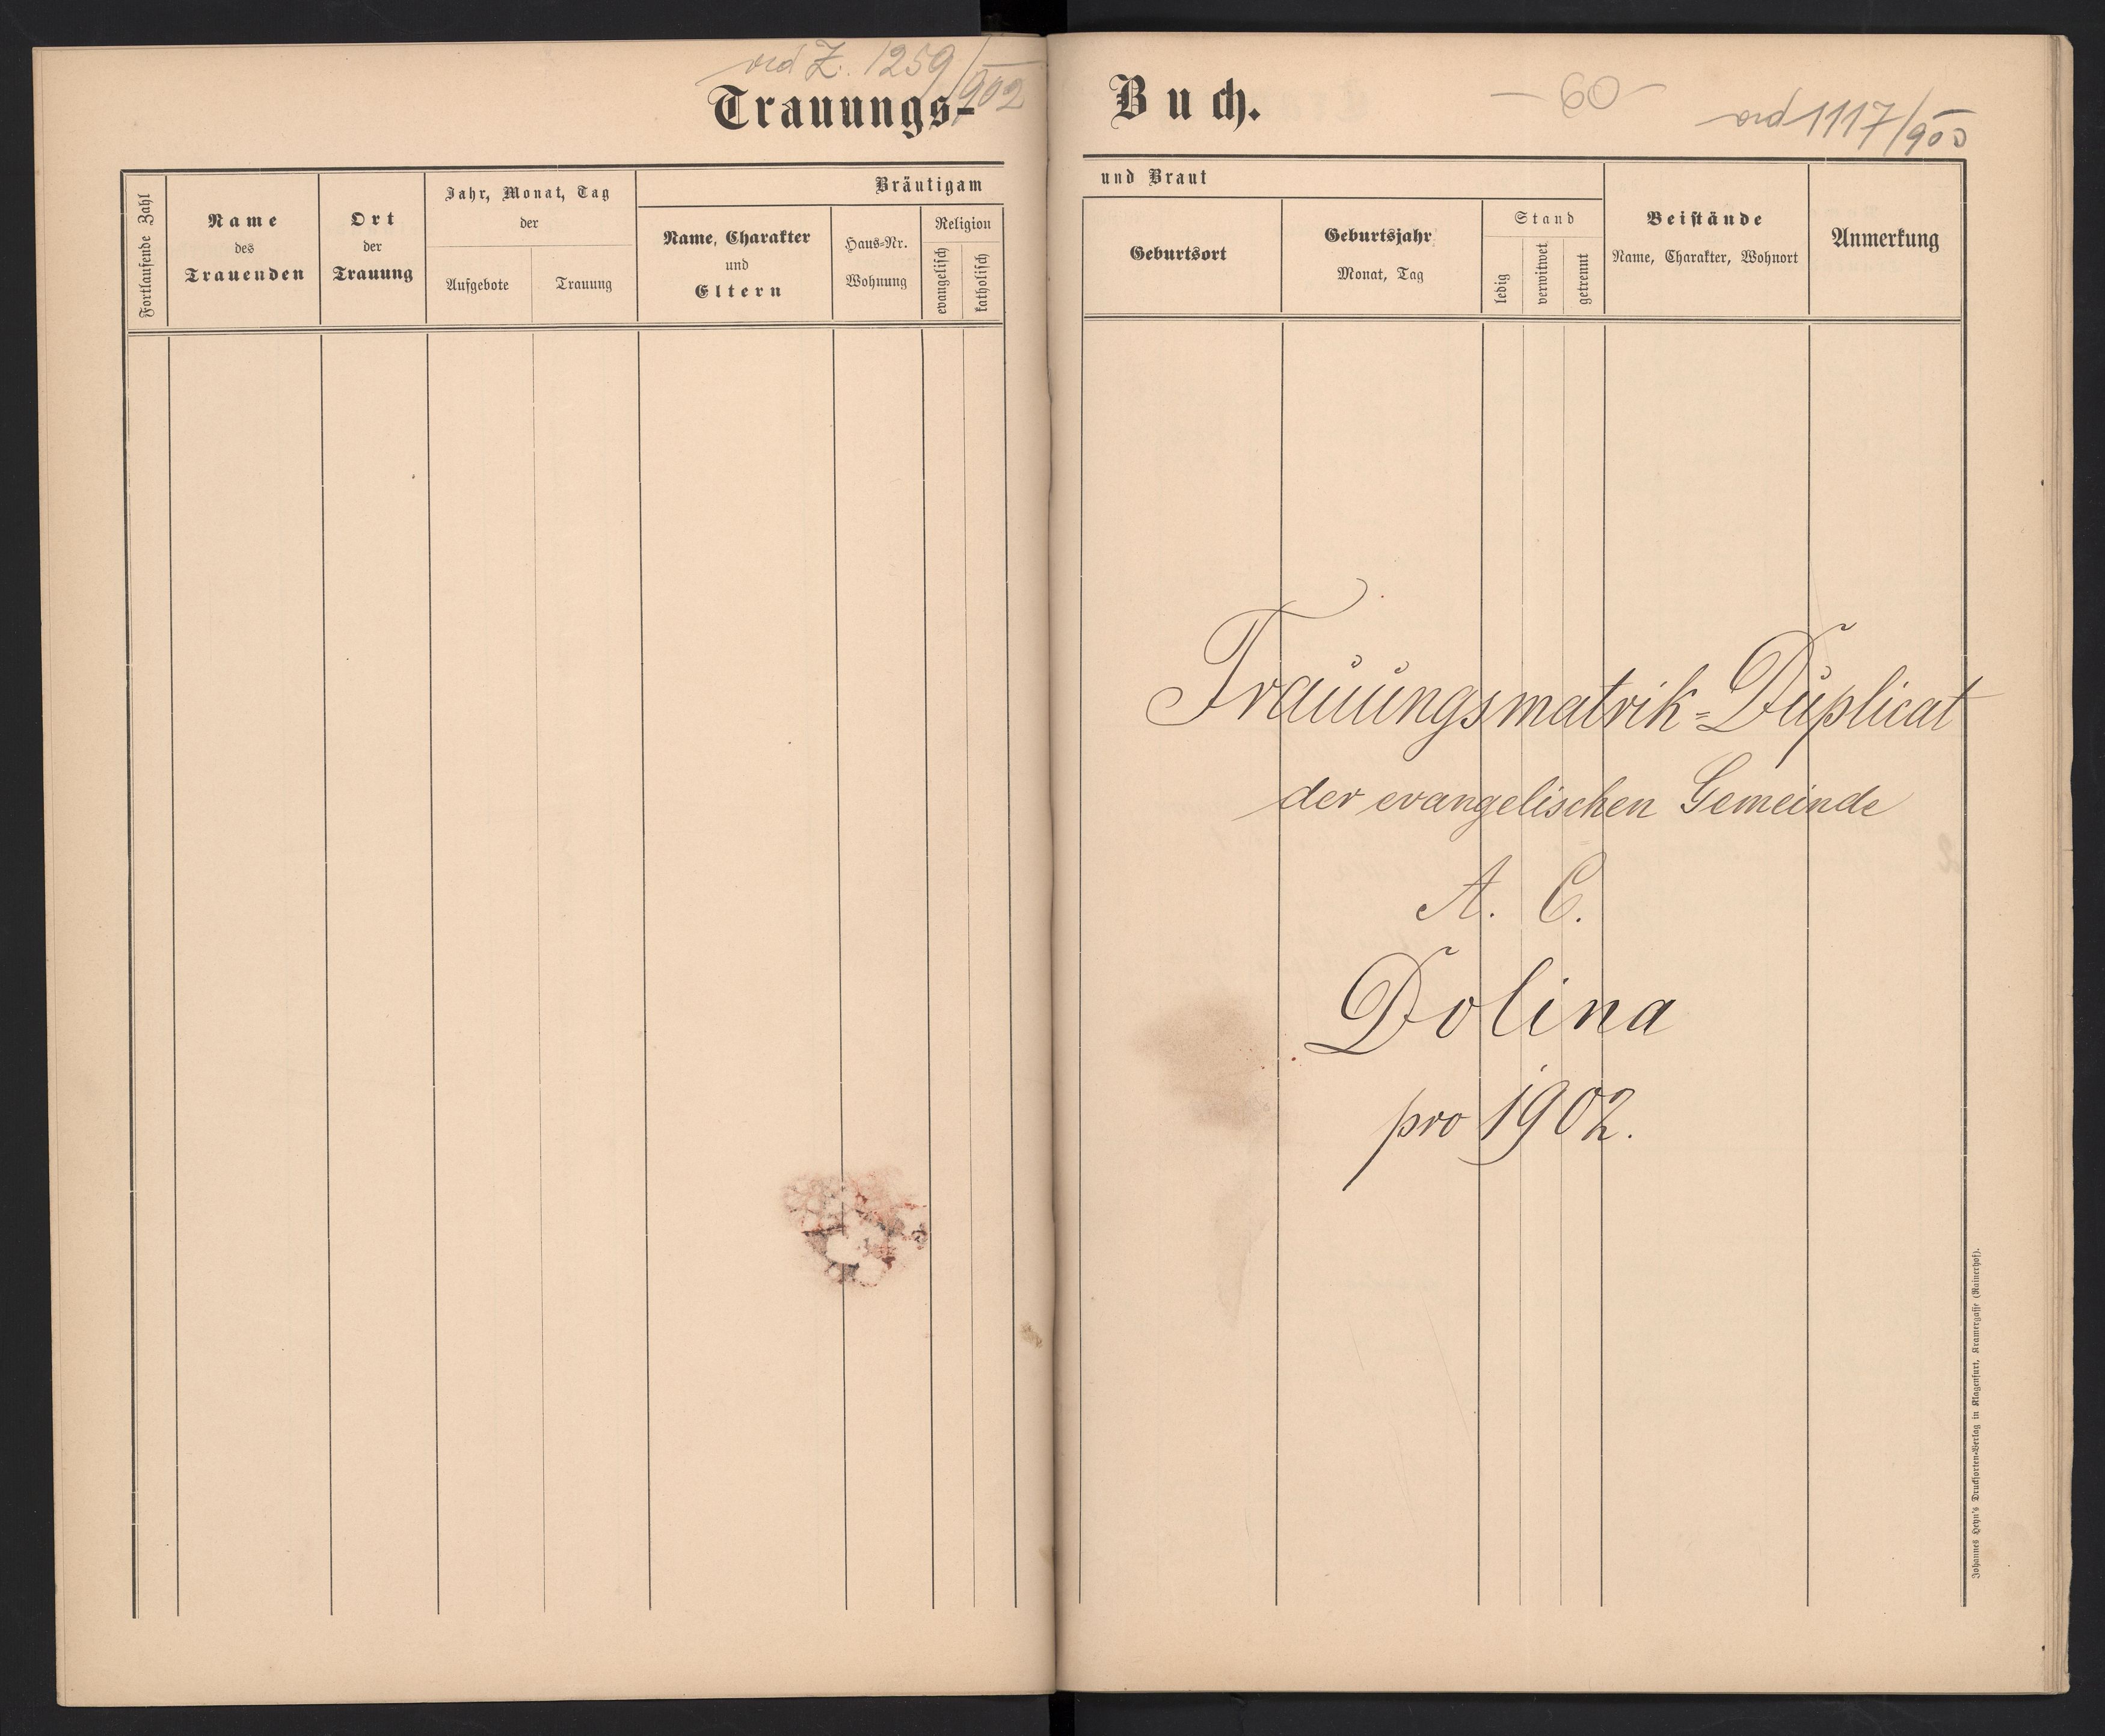 ord Z. 1259/902
Trauungs-
Fortlaufende Zahl
Name
des
Trauenden
Ort
der
Trauung
Jahr, Monat, Tag
der
Aufgebote
Trauung
Bräutigam
Name, Charakter
und
Eltern
Haus-Nr.
Wohnung
Religion
evangelisch
katholisch
Buch.
- 60 -
ord 1117/900
und Braut
Geburtsort
Geburtsjahr
Monat, Tag
Stand
ledig
verwitwet
getrennt
Beistände
Name, Charakter, Wohnort
Anmerkung
Trauungsmatrik=Duplicat
der evangelischen Gemeinde
A. C.
Dolina
pro 1902.
Johannes Heyn's Drucksorten-Verlag in Klagenfurt, Kramergasse (Rainerhof).